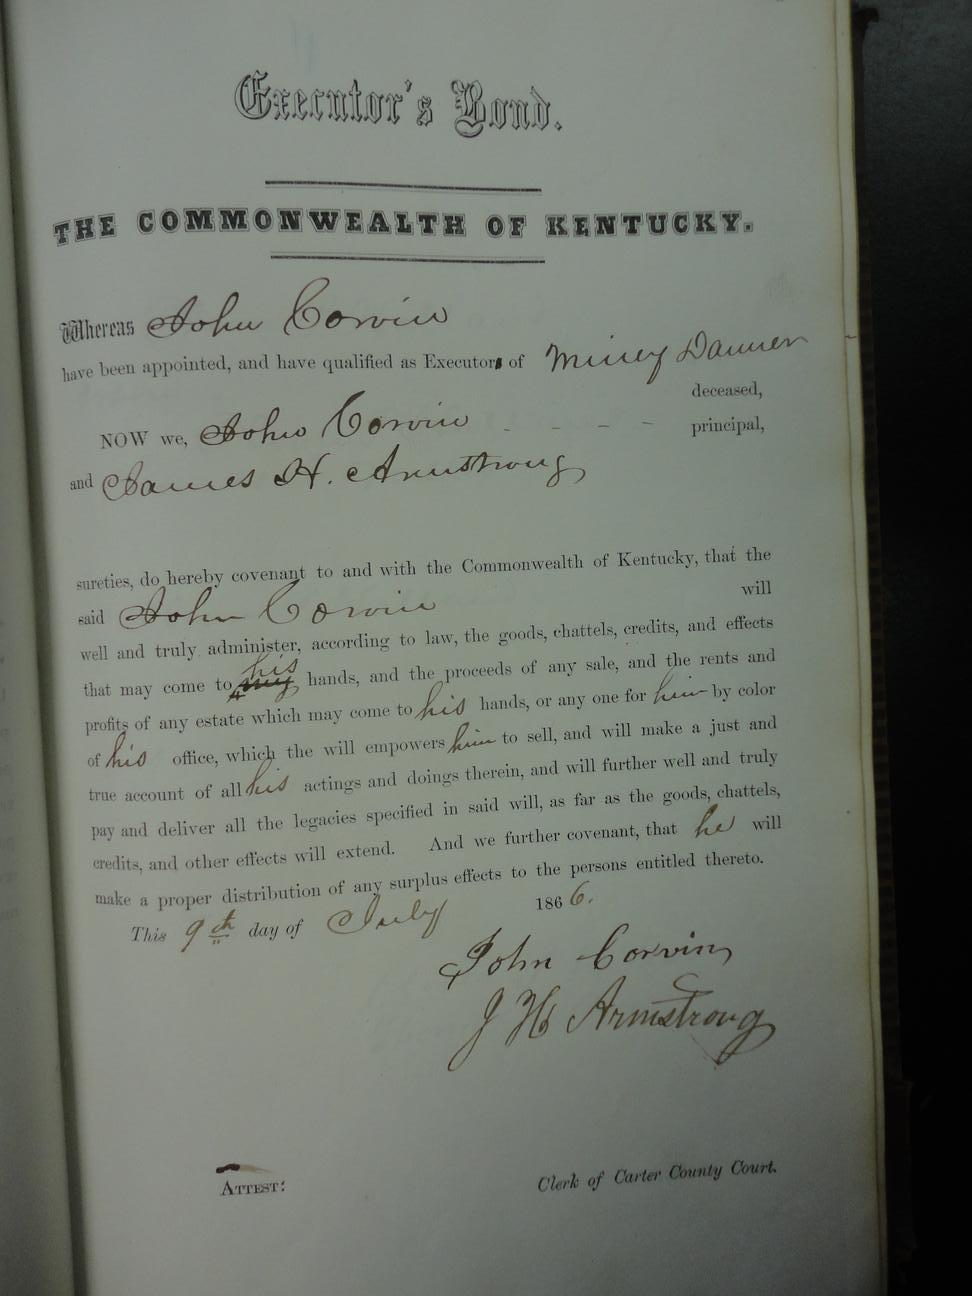 Executor's Bond.
THE COMMONWEALTH OF KENTUCKY.
Whereas John Corvin
have been appointed, and have qualified as Executors of Miney Danner
deceased,
NOW we, John Corvin - - - - principal,
and James H. Armstrong
sureties, do hereby covenant to and with the Commonwealth of Kentucky, that the
said John Corvin will
well and truly administer, according to law, the goods, chattels, credits, and effects
that may come to his hands, and the proceeds of any sale, and the rents and
profits of any estate which may come to his hands, or any one for him by color
of his office, which the will empowers him to sell, and will make a just and
true account of all his actings and doings therein, and will further well and truly
pay and deliver all the legacies specified in said will, as far as the goods, chattels,
credits, and other effects will extend. And we further covenant, that he will
make a proper distribution of any surplus effects to the persons entitled thereto.
This 9th day of July 1866.
John Corvin
J H Armstrong
ATTEST: Clerk of Carter County Court.